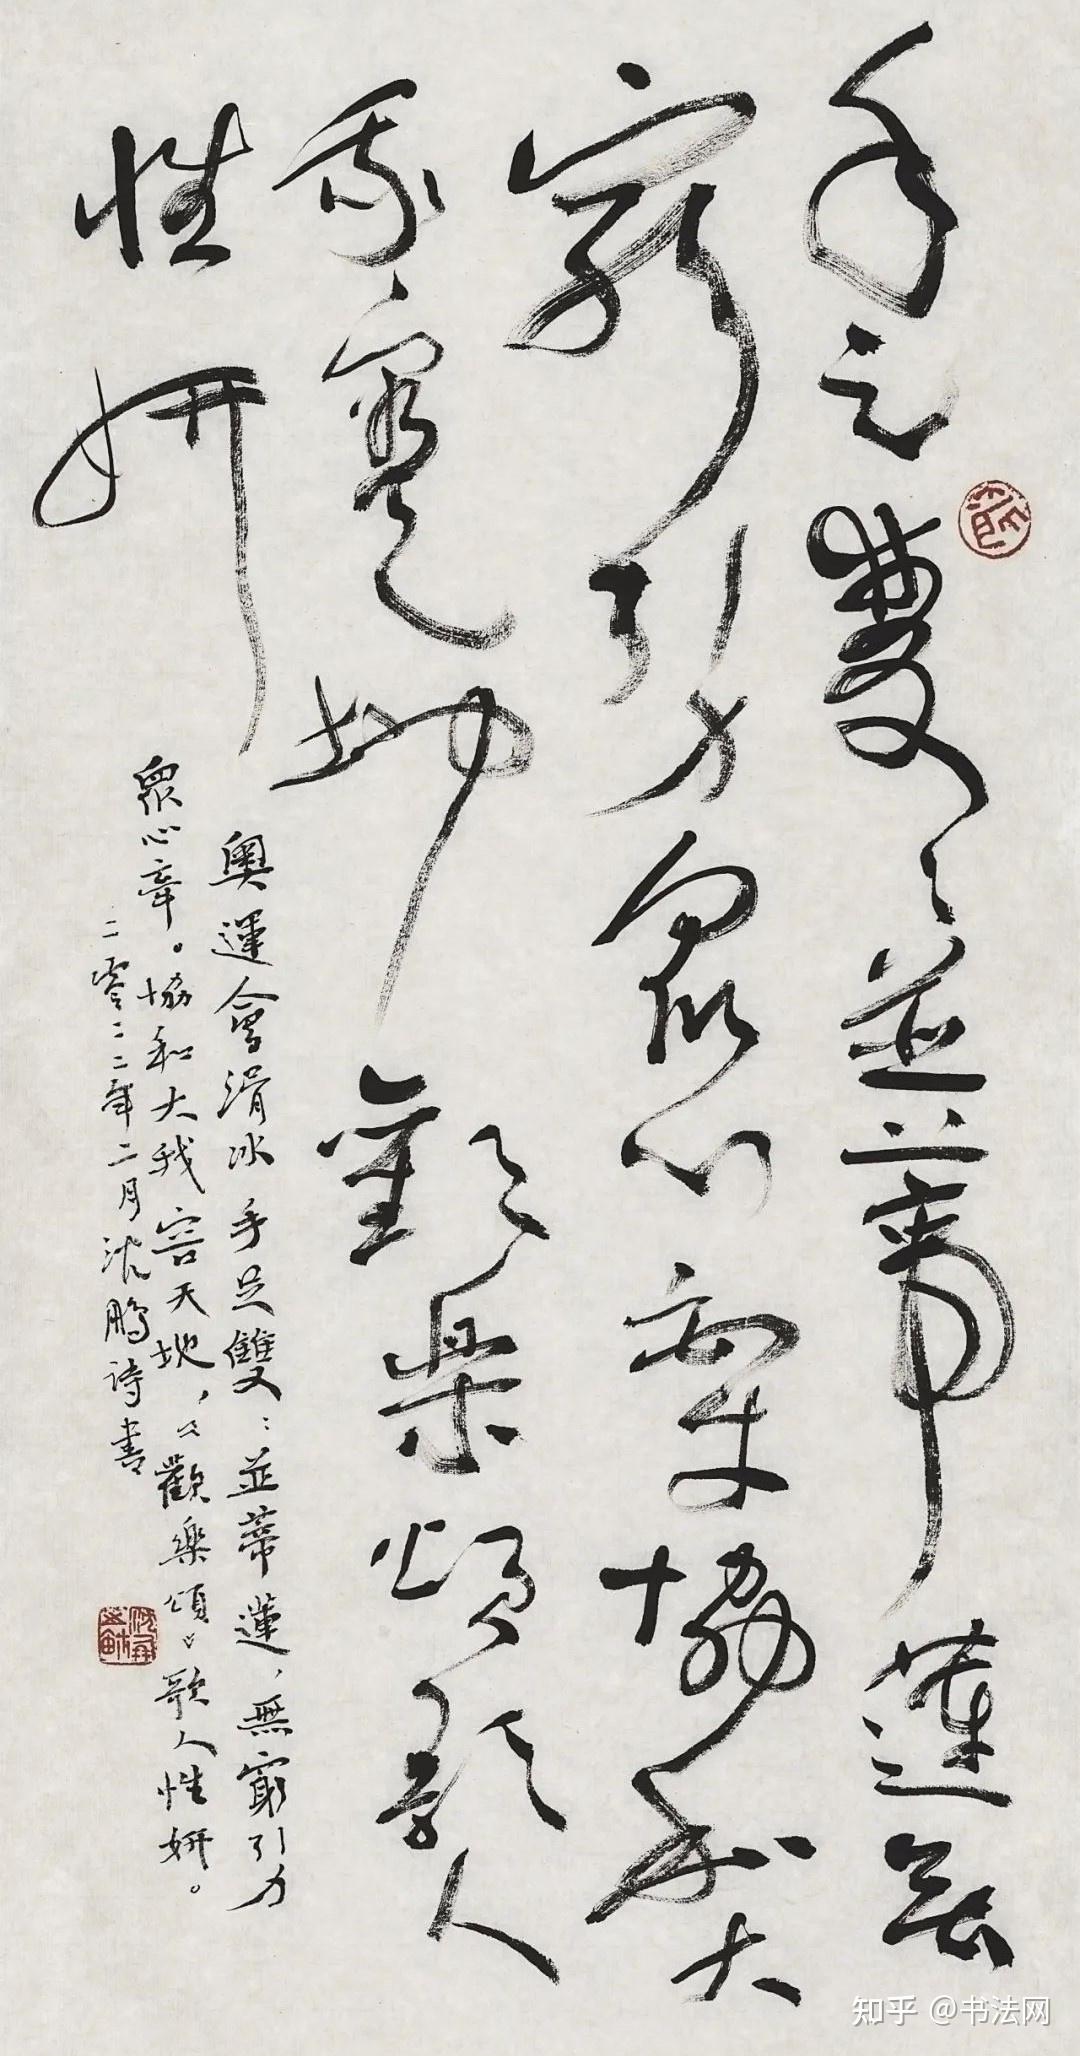 手足雙〻並蒂蓮無
窮引力眾心牽協和大
我容天地歡樂頌歌人
性妍
奧運會滑冰手足雙〻並蒂蓮，無窮引力
眾心牽。協和大我容天地，《歡樂頌》歌人性妍。
二零二二年二月沈鵬詩書
知乎 @书法网